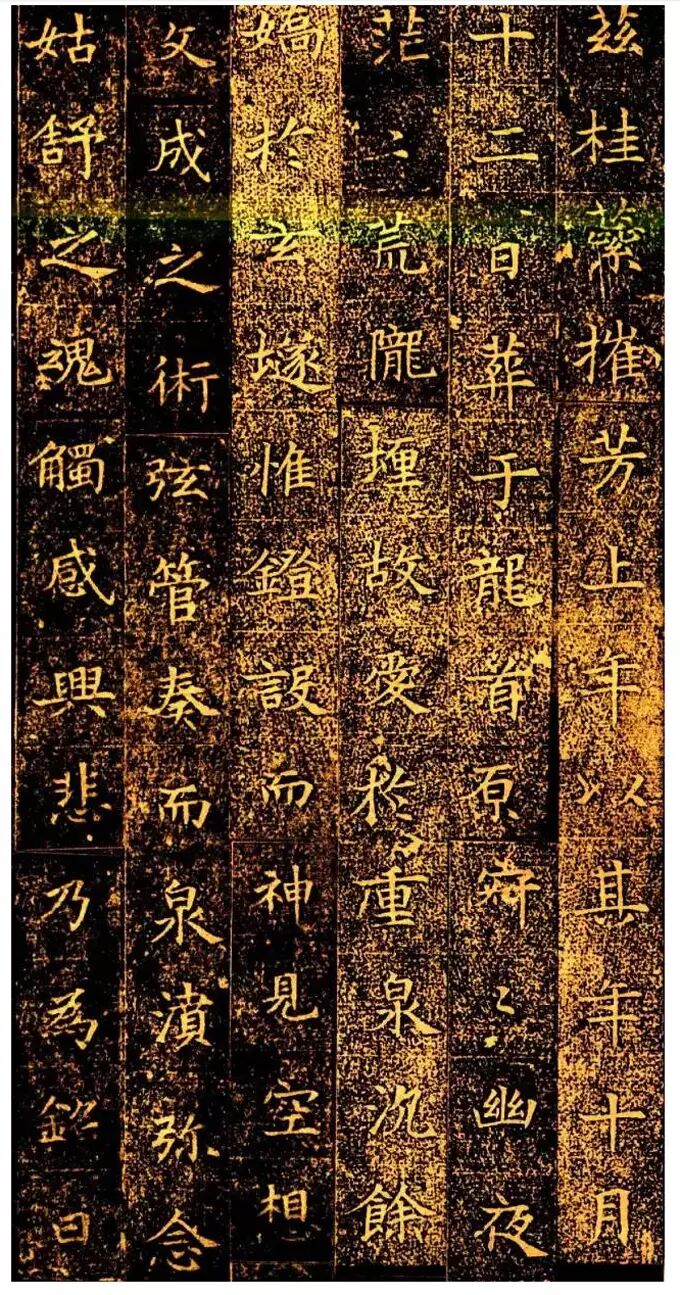 兹桂蘂摧芳上年以其年十月
十二日葬于龍首原寂〻幽夜
茫〻荒隴埋故愛於重泉沉餘
嬌於玄隧惟鐙設而神見空相
文成之術弦管奏而泉濆弥念
姑舒之魂觸感興悲乃為銘曰